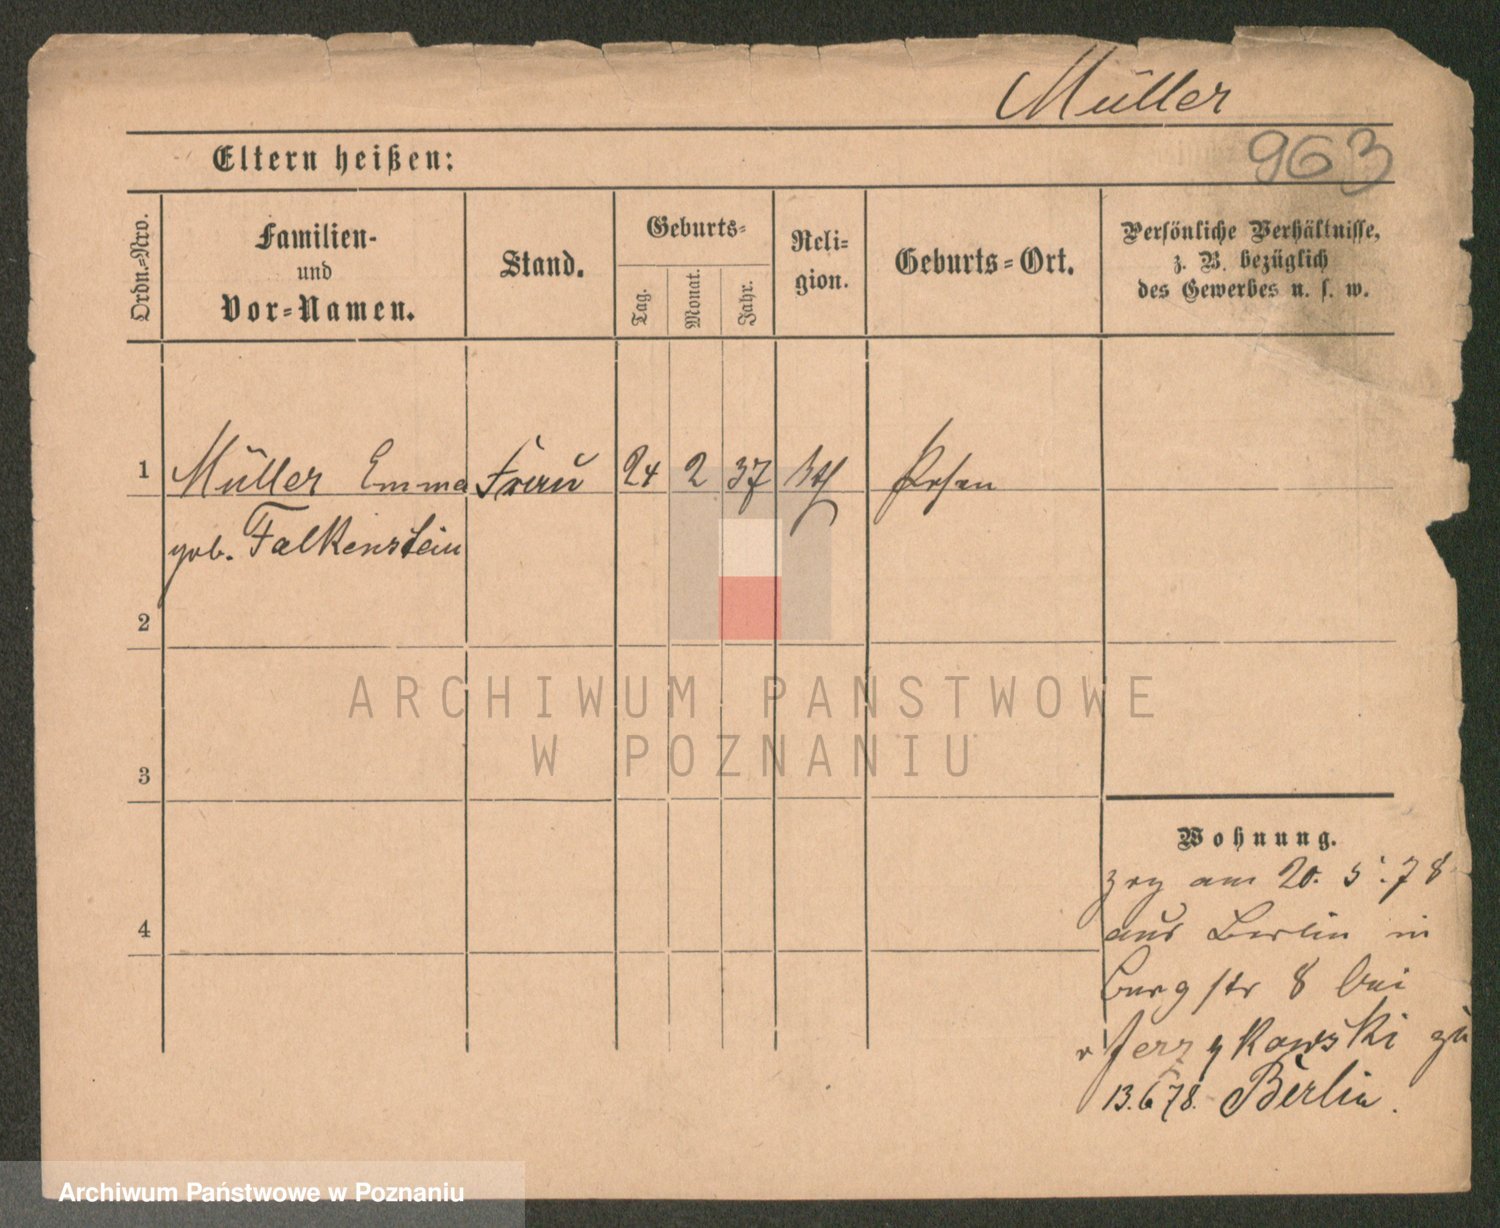 Müller
963
Eltern heißen:
Ordn.-Nro.
Familien-
und
Vor-Namen.
Stand.
Geburts-
Tag.
Monat.
Jahr.
Reli-
gion.
Geburts-Ort.
Persönliche Verhältnisse,
z. B. bezüglich
des Gewerbes u. s. w.
1 Müller Emma Frau 24 2 37 Posen
geb. Falkenstein
2
ARCHIWUM PAŃSTWOWE
W POZNANIU
3
Wohnung.
am 20. 5. 78
4 aus Berlin in
Burgstr 8 bei
Jerzykowski zu
13.6 78. Berlin.
Archiwum Państwowe w Poznaniu